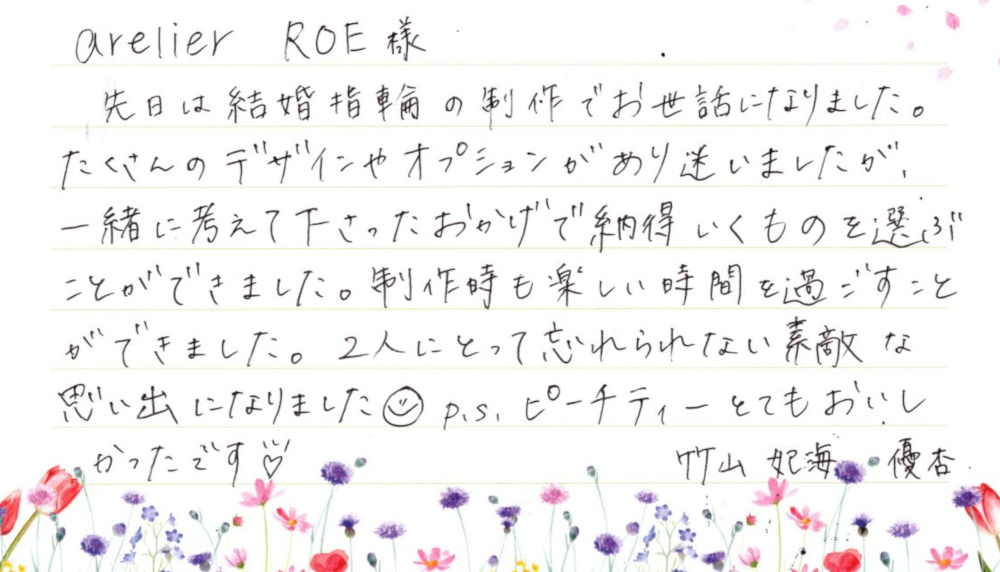 arelier ROE様
先日は結婚指輪の制作でお世話になりました。
たくさんのデザインやオプションがあり迷いましたが、
一緒に考えて下さったおかげで納得いくものを選ぶ
ことができました。制作時も楽しい時間を過ごすこと
ができました。2人にとって忘れられない素敵な
思い出になりました☺ p.s. ピーチティーとてもおいし
かったです♡
竹山 妃海 優杏